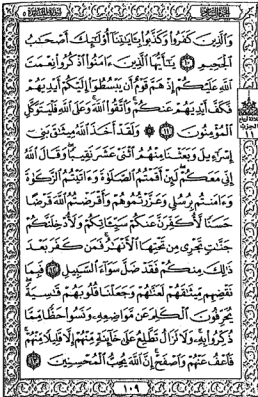 وَالَّذِينَ كَفَرُوا وَكَذَّبُوا بِآيَاتِنَا أُولَٰئِكَ أَصْحَابُ
الْجَحِيمِ ۝١٠ يَا أَيُّهَا الَّذِينَ ءَامَنُوا اذْكُرُوا نِعْمَتَ
اللَّهِ عَلَيْكُمْ إِذْ هَمَّ قَوْمٌ أَن يَبْسُطُوا إِلَيْكُمْ أَيْدِيَهُمْ
فَكَفَّ أَيْدِيَهُمْ عَنكُمْ وَاتَّقُوا اللَّهَ وَعَلَى اللَّهِ فَلْيَتَوَكَّلِ
الْمُؤْمِنُونَ ۝١١ وَلَقَدْ أَخَذَ اللَّهُ مِيثَاقَ بَنِي
إِسْرَاءِيلَ وَبَعَثْنَا مِنْهُمُ اثْنَيْ عَشَرَ نَقِيبًا وَقَالَ اللَّهُ
إِنِّي مَعَكُمْ لَئِنْ أَقَمْتُمُ الصَّلَوٰةَ وَءَاتَيْتُمُ الزَّكَوٰةَ
وَءَامَنتُم بِرُسُلِي وَعَزَّرْتُمُوهُمْ وَأَقْرَضْتُمُ اللَّهَ قَرْضًا
حَسَنًا لَّأُكَفِّرَنَّ عَنكُمْ سَيِّئَاتِكُمْ وَلَأُدْخِلَنَّكُمْ
جَنَّاتٍ تَجْرِي مِن تَحْتِهَا الْأَنْهَارُ فَمَن كَفَرَ بَعْدَ
ذَٰلِكَ مِنكُمْ فَقَدْ ضَلَّ سَوَاءَ السَّبِيلِ ۝١٢ فَبِمَا
نَقْضِهِم مِّيثَاقَهُمْ لَعَنَّاهُمْ وَجَعَلْنَا قُلُوبَهُمْ قَاسِيَةً
يُحَرِّفُونَ الْكَلِمَ عَن مَّوَاضِعِهِ وَنَسُوا حَظًّا مِّمَّا
ذُكِّرُوا بِهِ وَلَا تَزَالُ تَطَّلِعُ عَلَىٰ خَائِنَةٍ مِّنْهُمْ إِلَّا قَلِيلًا مِّنْهُمْ
فَاعْفُ عَنْهُمْ وَاصْفَحْ إِنَّ اللَّهَ يُحِبُّ الْمُحْسِنِينَ ۝١٣
١٠٩